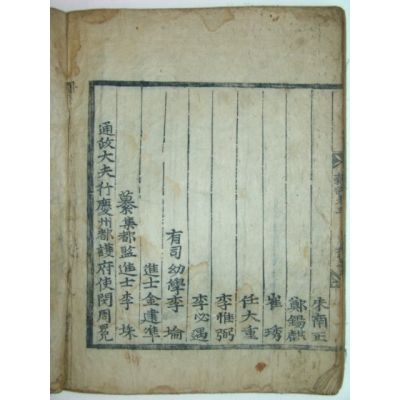 鄭錫麒
崔琇
任大重
李惟弼
李必遇
有司 幼學 李
進士 金建準
纂集都監進士 李埰
通政大夫行慶州都護府使閔周冕